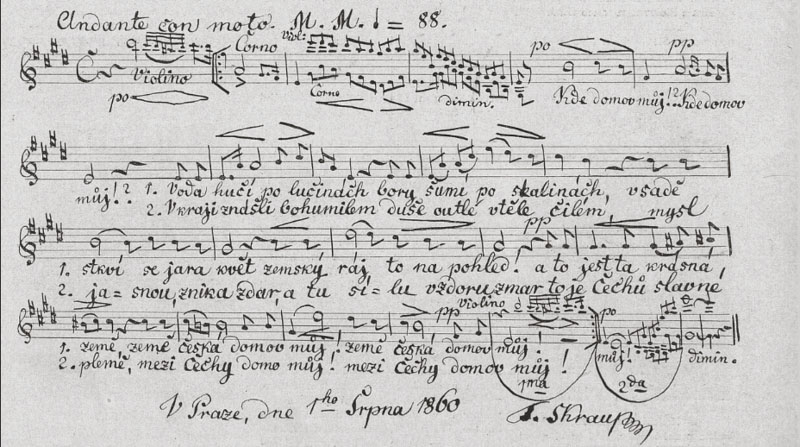 Andante con moto. M. M. ♩ = 88.
Viol: Corno po pp
Violino
po Corno dimin. Kde domov můj!? Kde domov
můj!? 1. Voda hučí po lučinách bory šumí po skalinách, v sadě
2. V kraji znášli bohumilém duše outlé v těle čilém, mysl
pp
1. stkví se jara květ zemský ráj to na pohled! a to jest ta krásná,
2. ja= snou, znik a zdar, a tu sí= lu vzdoru zmar to je Čechů slavné
pp violino po
1. země, země česká domov můj! země česká, domov můj! můj! dimin.
2. plémě, mezi Čechy domov můj! mezi Čechy domov můj!
1ma 2da
V Praze, dne 1ho Srpna 1860 F. Skraup